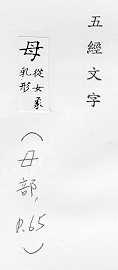 五經文字
母從女象
乳形
（母部，
P.65）